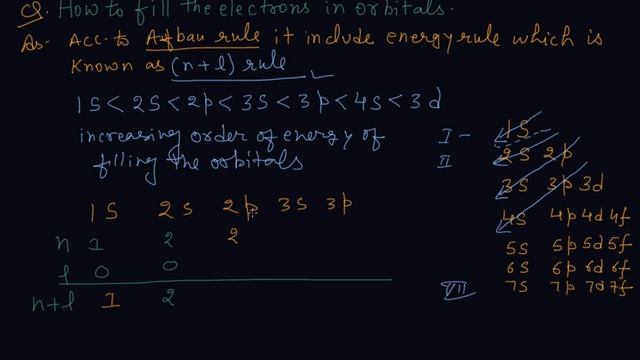 Q. How to fill the electrons in orbitals.
As. Acc. to Aufbau rule it include energy rule which is
Known as (n+l) rule
1S < 2S < 2p < 3S < 3p < 4S < 3d
increasing order of energy of
filling the orbitals
1S 2S 2p 3S 3p
n 1 2 2
l 0 0
n+l 1 2
I - 1S
II 2S 2p
3S 3p 3d
4S 4p 4d 4f
5S 5p 5d 5f
6S 6p 6d 6f
VII 7S 7p 7d 7f